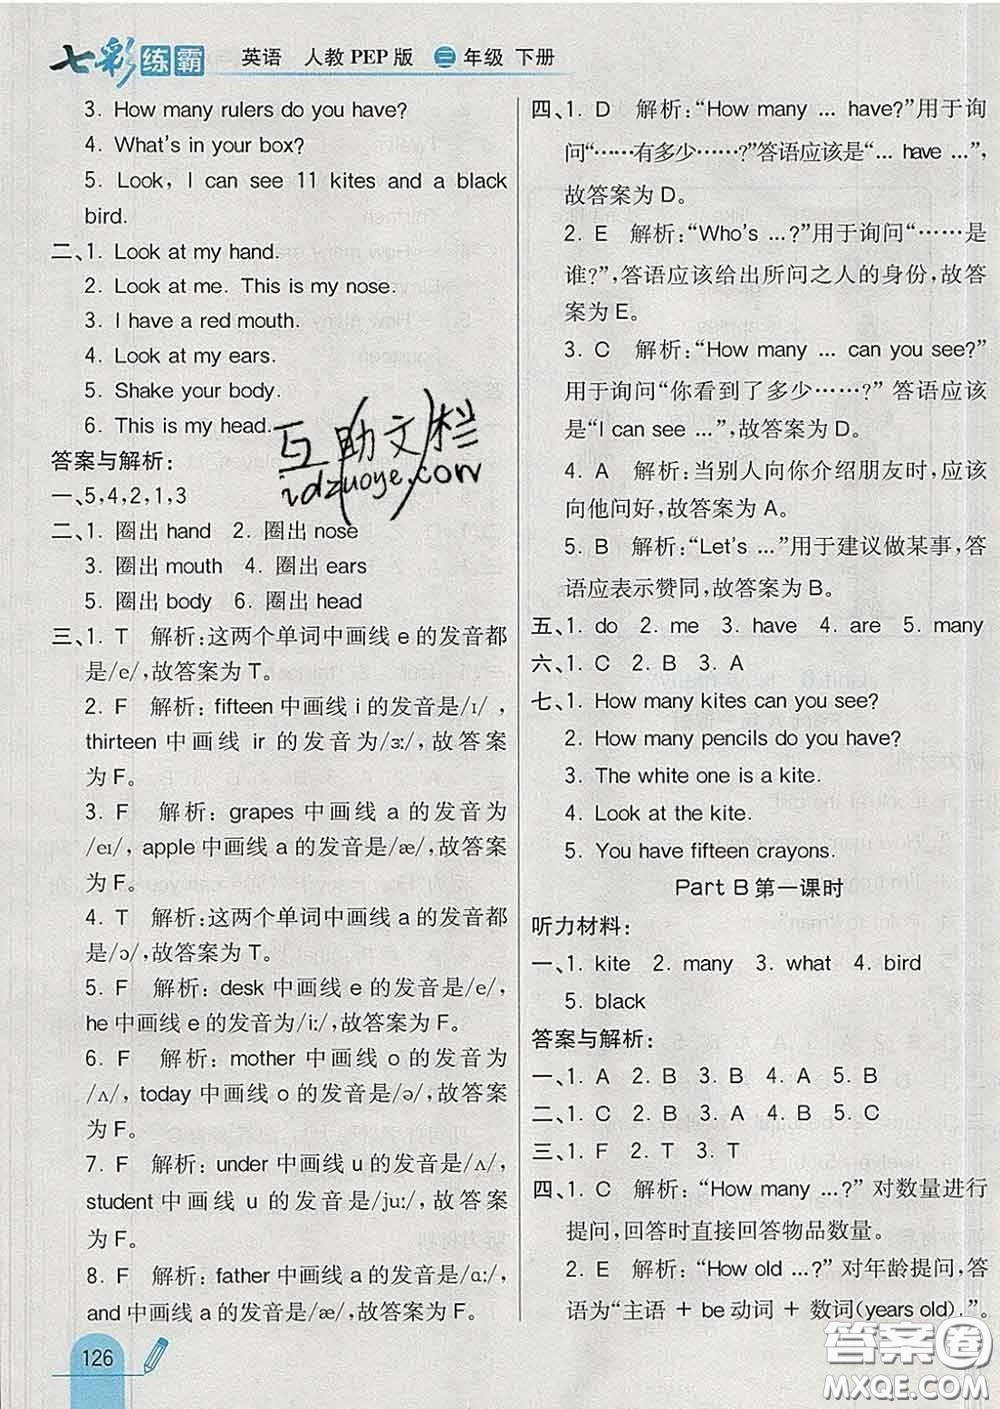 七彩练霸 英语 人教PEP版 三年级 下册
3. How many rulers do you have?
4. What's in your box?
5. Look, I can see 11 kites and a black
bird.
二、1. Look at my hand.
2. Look at me. This is my nose.
3. I have a red mouth.
4. Look at my ears.
5. Shake your body.
6. This is my head.
答案与解析:
一、5,4,2,1,3
二、1. 圈出 hand 2. 圈出 nose
3. 圈出 mouth 4. 圈出 ears
5. 圈出 body 6. 圈出 head
三、1. T 解析:这两个单词中画线 e 的发音都
是/e/,故答案为 T。
2. F 解析: fifteen 中画线 i 的发音是/ɪ/ ,
thirteen 中画线 ir 的发音为/ɜː/,故答案
为 F。
3. F 解析: grapes 中画线 a 的发音为
/eɪ/, apple 中画线 a 的发音是/æ/,故答
案为 F。
4. T 解析:这两个单词中画线 a 的发音都
是/ə/,故答案为 T。
5. F 解析: desk 中画线 e 的发音是/e/,
he 中画线 e 的发音为/iː/,故答案为 F。
6. F 解析: mother 中画线 o 的发音为
/ʌ/, today 中画线 o 的发音是/ə/,故答案
为 F。
7. F 解析: under 中画线 u 的发音是/ʌ/,
student 中画线 u 的发音是/juː/,故答案
为 F。
8. F 解析: father 中画线 a 的发音是/ɑː/,
and 中画线 a 的发音是/æ/,故答案为 F。
126
四、1. D 解析:“How many ... have?”用于询
问“……有多少……?”答语应该是“... have ...”,
故答案为 D。
2. E 解析:“Who's ...?”用于询问“……是
谁?”,答语应该给出所问之人的身份,故答
案为 E。
3. C 解析:“How many ... can you see?”
用于询问“你看到了多少……?” 答语应该
是“I can see ...”,故答案为 C。
4. A 解析:当别人向你介绍朋友时,应该
向他问好,故答案为 A。
5. B 解析:“Let's ...”用于建议做某事,答
语应表示赞同,故答案为 B。
五、1. do 2. me 3. have 4. are 5. many
六、1. C 2. B 3. A
七、1. How many kites can you see?
2. How many pencils do you have?
3. The white one is a kite.
4. Look at the kite.
5. You have fifteen crayons.
Part B 第一课时
听力材料:
一、1. kite 2. many 3. what 4. bird
5. black
答案与解析:
一、1. A 2. B 3. B 4. A 5. B
二、1. C 2. B 3. A 4. B 5. C
三、1. F 2. T 3. T
四、1. C 解析:“How many ...?” 对数量进行
提问,回答时直接回答物品数量。
2. E 解析:“How old ...?” 对年龄提问,答
语为“主语 + be 动词 + 数词(years old).”。
互助文栏
idzuoye.com
答案圈
MXQE.COM